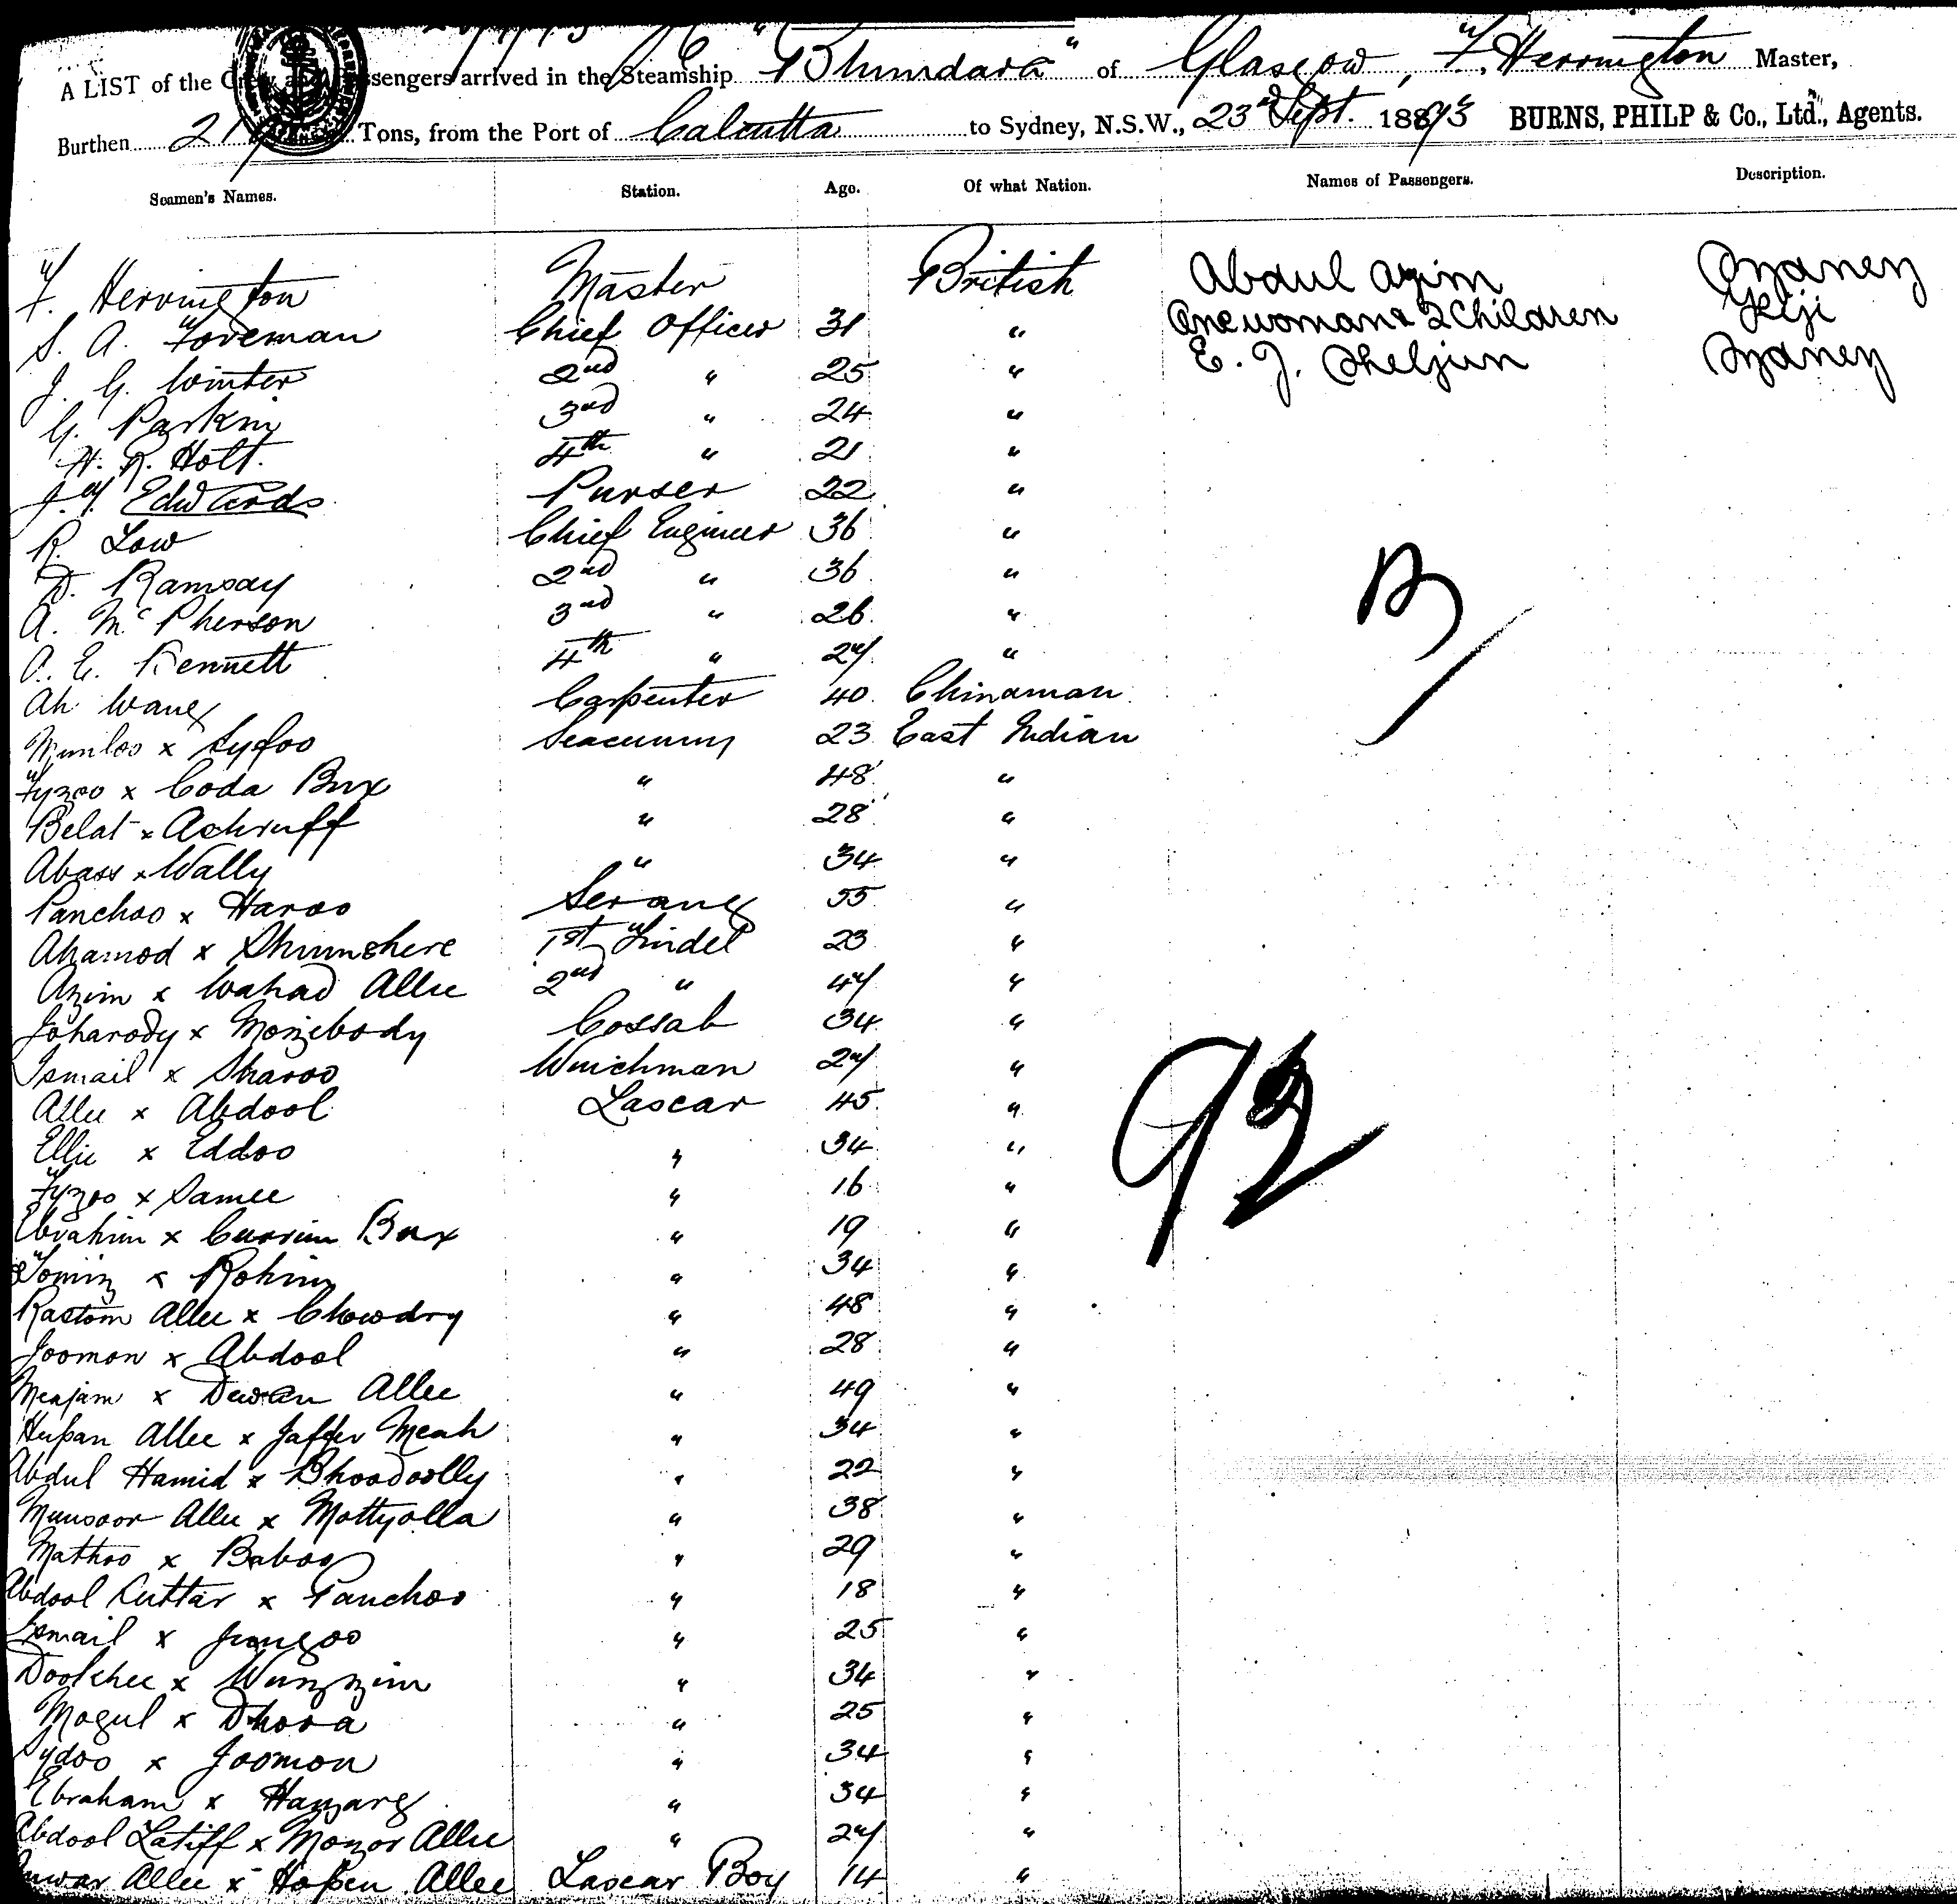 A LIST of the Crew and Passengers arrived in the Steamship "Bhundara" of Glasgow, F. Herrington Master,
Burthen Tons, from the Port of Calcutta to Sydney, N.S.W., 23rd Sept. 1893 BURNS, PHILP & Co., Ltd., Agents.
Seamen's Names. Station. Age. Of what Nation. Names of Passengers. Description.
F. Herrington Master British Abdul Azim Sydney
S. A. Foreman Chief Officer 31 " One woman & 2 Children Fiji
J. G. Winter 2nd " 25 " E. J. Sydney
G. Parkin 3rd " 24 "
H. R. Holt. 4th " 21 "
J. Y. Edwards Purser 22 "
R. Low Chief Engineer 36 "
D. Ramsay 2nd " 36 "
A. McPherson 3rd " 26 "
A. E. Bennett 4th " 27 "
Ah Wang Carpenter 40 Chinaman
Munloo x Syfoo Seacunny 23 East Indian
Fyzoo x Coda Bux " 48 "
Belat x Achruff " 28 "
Abass x Wally " 34 "
Panchoo x Haroo Serang 55 "
Ahamod x Shumshere 1st Tindel 23 "
Azim x Wahad Allee 2nd " 47 "
Joharody x Mozibody Cossab 34 "
Ismail x Sharoo Winchman 27 "
Allee x Abdool Lascar 45 "
Ellie x Eddoo " 34 "
Fyzoo x Samee " 16 "
Ebrahim x Currim Bux " 19 "
Tomiz x Rohim " 34 "
Rastom Allee x Chowdry " 48 "
Joomon x Abdool " 28 "
Meajam x Dewan Allee " 49 "
Hussan Allee x Jaffer Meah " 34 "
Abdul Hamid x Bhoodoolly " 22 "
Munsoor Allee x Mottyolla " 38 "
Mathoo x Baboo " 29 "
Abdool Suttar x Panchoo " 18 "
Ismail x Jungoo " 25 "
Doolchee x Wuzzim " 34 "
Mogul x Dhora " 25 "
Sydoo x Joomon " 34 "
Ebraham x Hazarg " 34 "
Abdool Latiff x Monor Allee " 27 "
Anwar Allee x Hossen Allee Lascar Boy 14 "
92